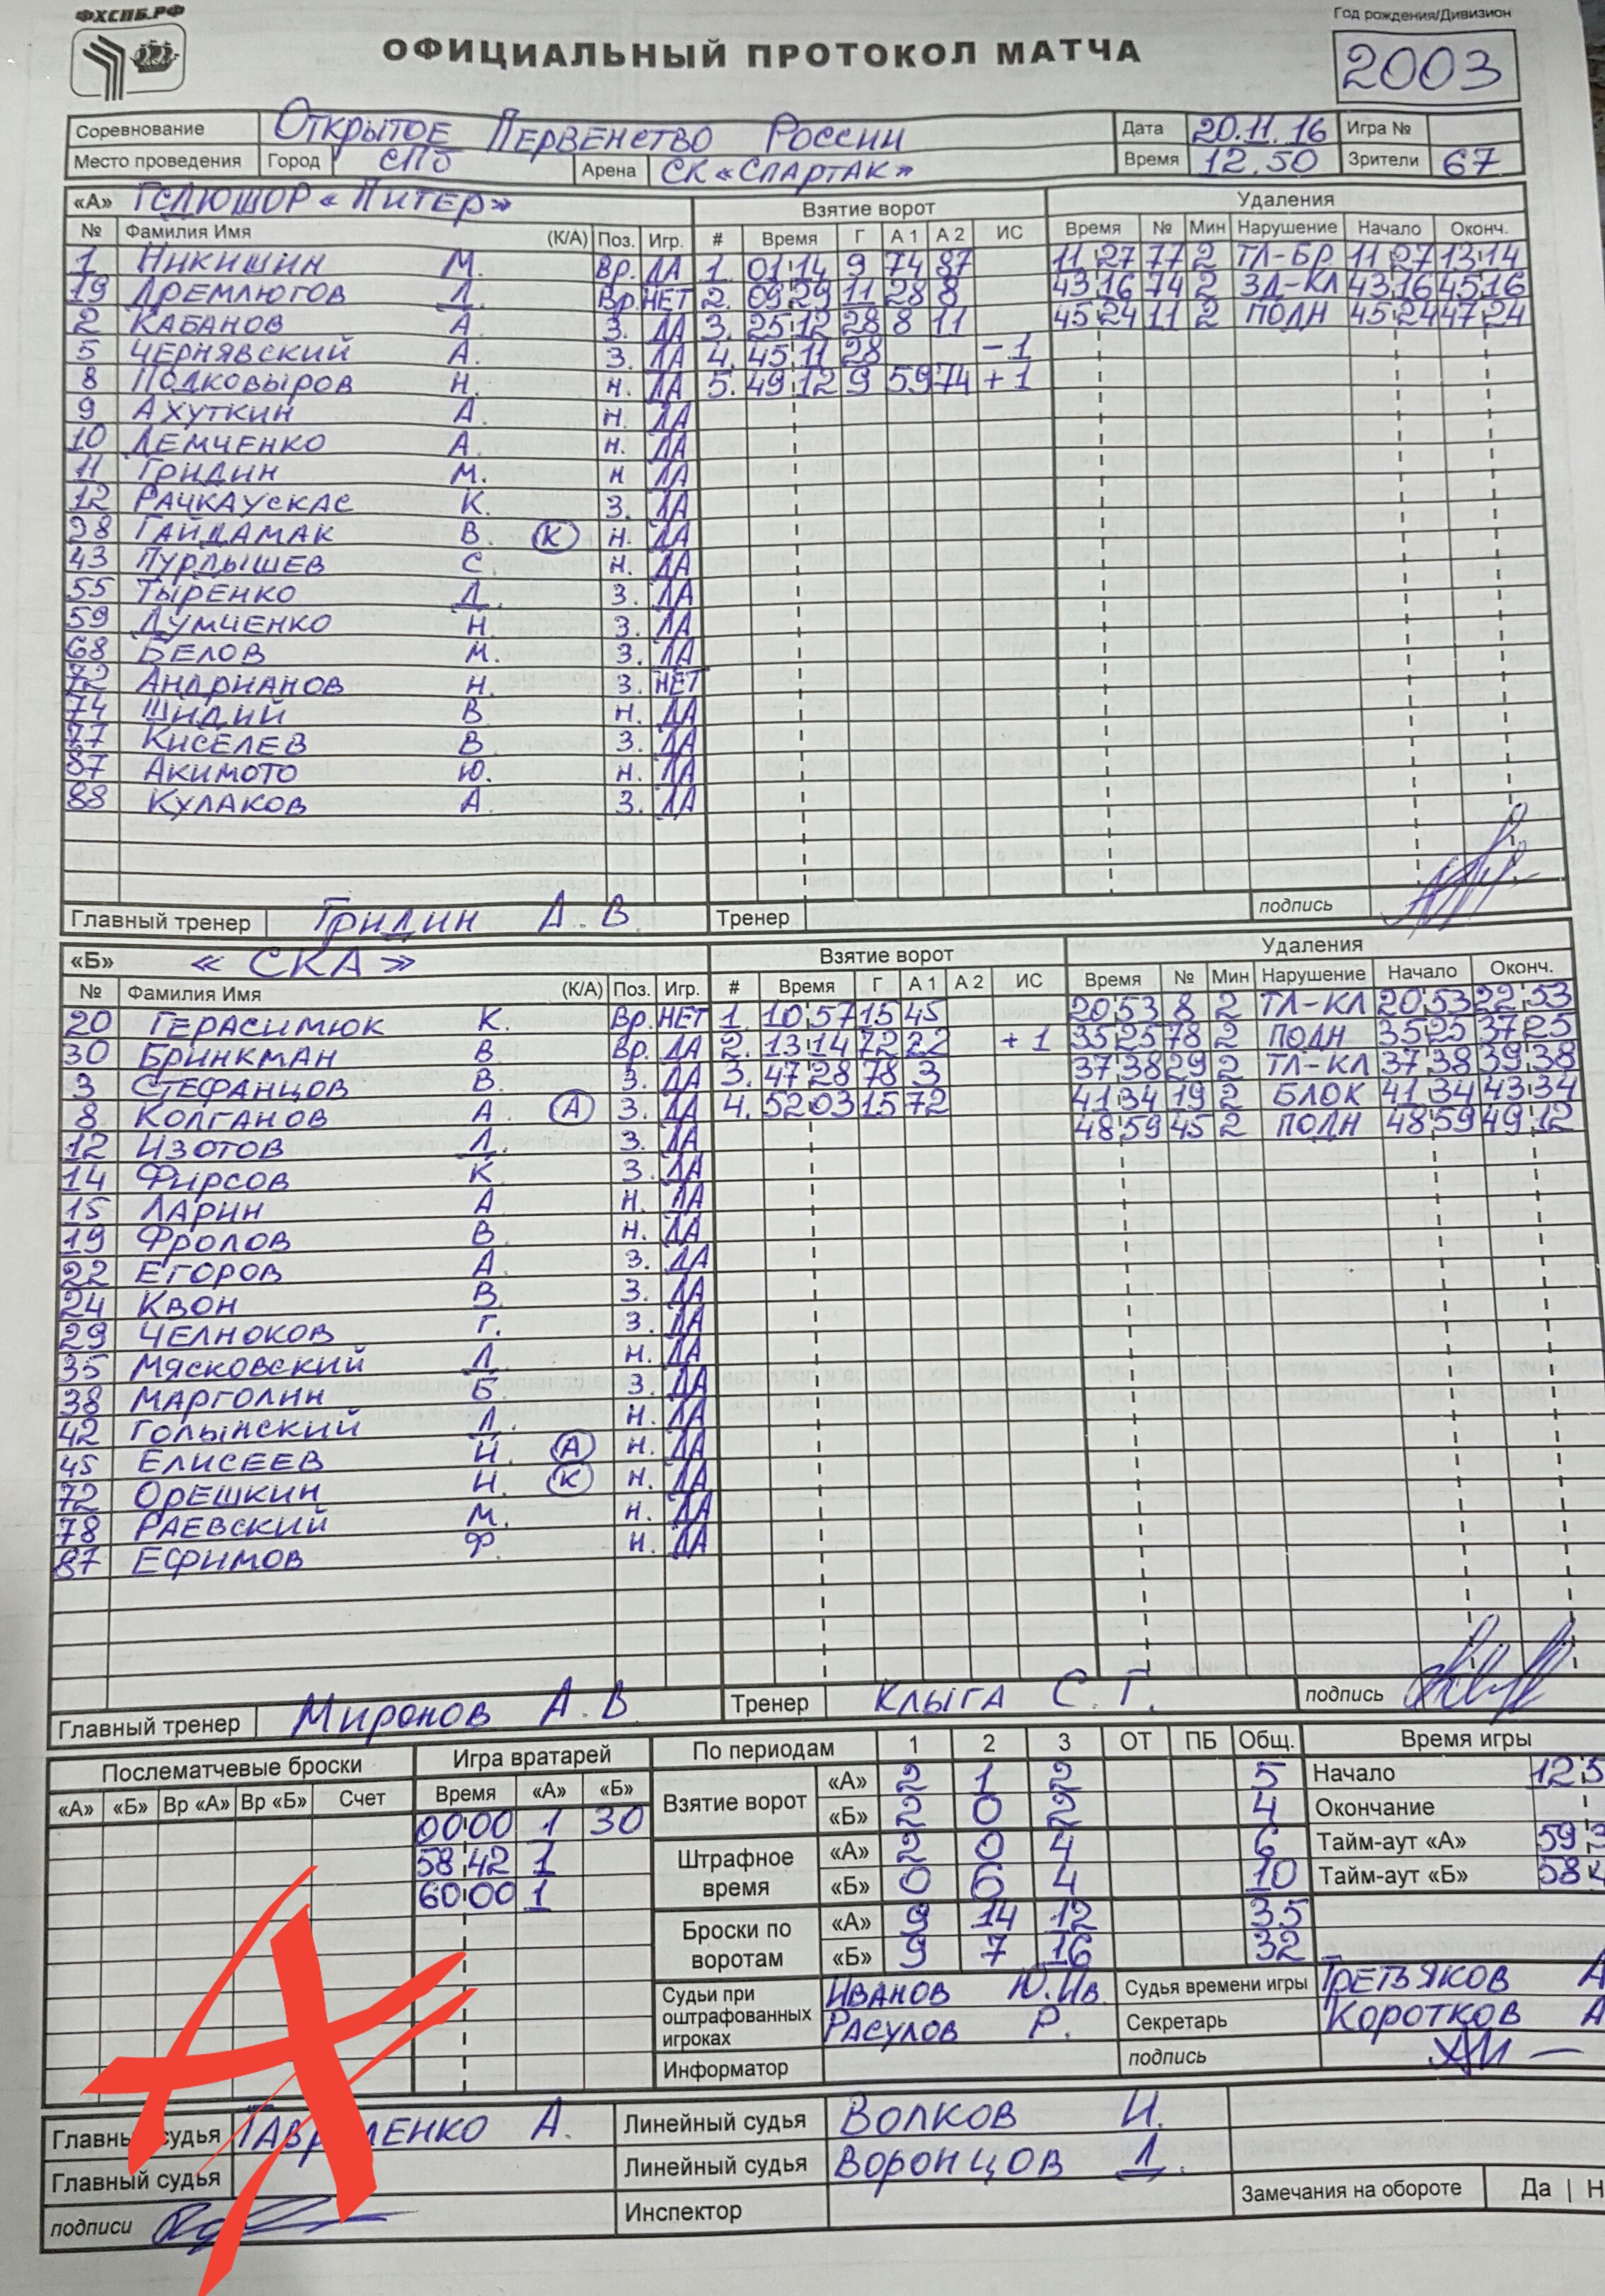 ФХСПБ.РФ
ОФИЦИАЛЬНЫЙ ПРОТОКОЛ МАТЧА
Год рождения/Дивизион
2003
Соревнование Открытое Первенство России Дата 20.11.16 Игра №
Место проведения Город СПб Арена СК «СПАРТАК» Время 12.50 Зрители 67
«А» ГСДЮШОР «Питер» Взятие ворот Удаления
№ Фамилия Имя (К/А) Поз. Игр. # Время Г А 1 А 2 ИС Время № Мин Нарушение Начало Оконч.
1 Никишин М. Вр. ДА 1. 01 14 9 74 87 11 27 77 2 ТЛ-БР 11 27 13 14
19 Дремлюгов Д. Вр. НЕТ 2. 09 29 11 28 8 43 16 74 2 ЗД-КЛ 43 16 45 16
2 Кабанов А. З. ДА 3. 25 12 28 8 11 45 24 11 2 ПОДН 45 24 47 24
5 Чернявский А. З. ДА 4. 45 11 28 -1
8 Подковыров Н. Н. ДА 5. 49 12 9 59 74 +1
9 Ахуткин А. Н. ДА
10 Демченко А. Н. ДА
11 Гридин М. Н ДА
12 Рачкаускас К. З. ДА
28 Гайдамак В. (К) Н. ДА
43 Пурдышев С. Н. ДА
55 Тыренко Д. З. ДА
59 Думченко Н. З. ДА
68 Белов М. З. ДА
72 Андрианов Н. З. НЕТ
74 Шидий В Н. ДА
77 Киселев В З. ДА
87 Акимото Ю. Н. ДА
88 Кулаков А З. ДА
Главный тренер Гридин А. В. Тренер подпись
«Б» «СКА» Взятие ворот Удаления
№ Фамилия Имя (К/А) Поз. Игр. # Время Г А 1 А 2 ИС Время № Мин Нарушение Начало Оконч.
20 Герасимюк К. Вр. НЕТ 1. 10 57 15 45 20 53 8 2 ТЛ-КЛ 20 53 22 53
30 Бринкман В Вр. ДА 2. 13 14 72 22 +1 35 25 78 2 ПОДН 35 25 37 25
3 Стефанцов В. З. ДА 3. 47 28 78 3 37 38 29 2 ТЛ-КЛ 37 38 39 38
8 Колганов А. (А) З. ДА 4. 52 03 15 72 41 34 19 2 БЛОК 41 34 43 34
12 Изотов Д. З. ДА 48 59 45 2 ПОДН 48 59 49 12
14 Фирсов К З. ДА
15 Ларин А Н. ДА
19 Фролов В. Н. ДА
22 Егоров А. З. ДА
24 Квон В. З. ДА
29 Челноков Г. З. ДА
35 Мясковский Д. Н. ДА
38 Марголин Б З. ДА
42 Голынский Д. Н. ДА
45 Елисеев И. (А) Н. ДА
72 Орешкин И. (К) Н. ДА
78 Раевский М. Н. ДА
87 Ефимов Ф. Н. ДА
Главный тренер Миронов А. В Тренер Клыга С. Г. подпись
Послематчевые броски Игра вратарей По периодам 1 2 3 ОТ ПБ Общ. Время игры
«А» «Б» Вр «А» Вр «Б» Счет Время «А» «Б»
Взятие ворот «А» 2 1 2 5 Начало 12 5
00 00 1 30 «Б» 2 0 2 4 Окончание
58 42 1 Штрафное время «А» 2 0 4 6 Тайм-аут «А» 59 3
60 00 1 «Б» 0 6 4 10 Тайм-аут «Б» 58 4
Броски по воротам «А» 9 14 12 35
«Б» 9 7 16 32
Судьи при оштрафованных игроках Иванов Ю.Ив. Судья времени игры Третьяков А
Расулов Р. Секретарь Коротков А
Информатор подпись
Главный судья Гавриленко А. Линейный судья Волков И.
Главный судья Линейный судья Воронцов Д.
подписи Инспектор Замечания на обороте Да | Н